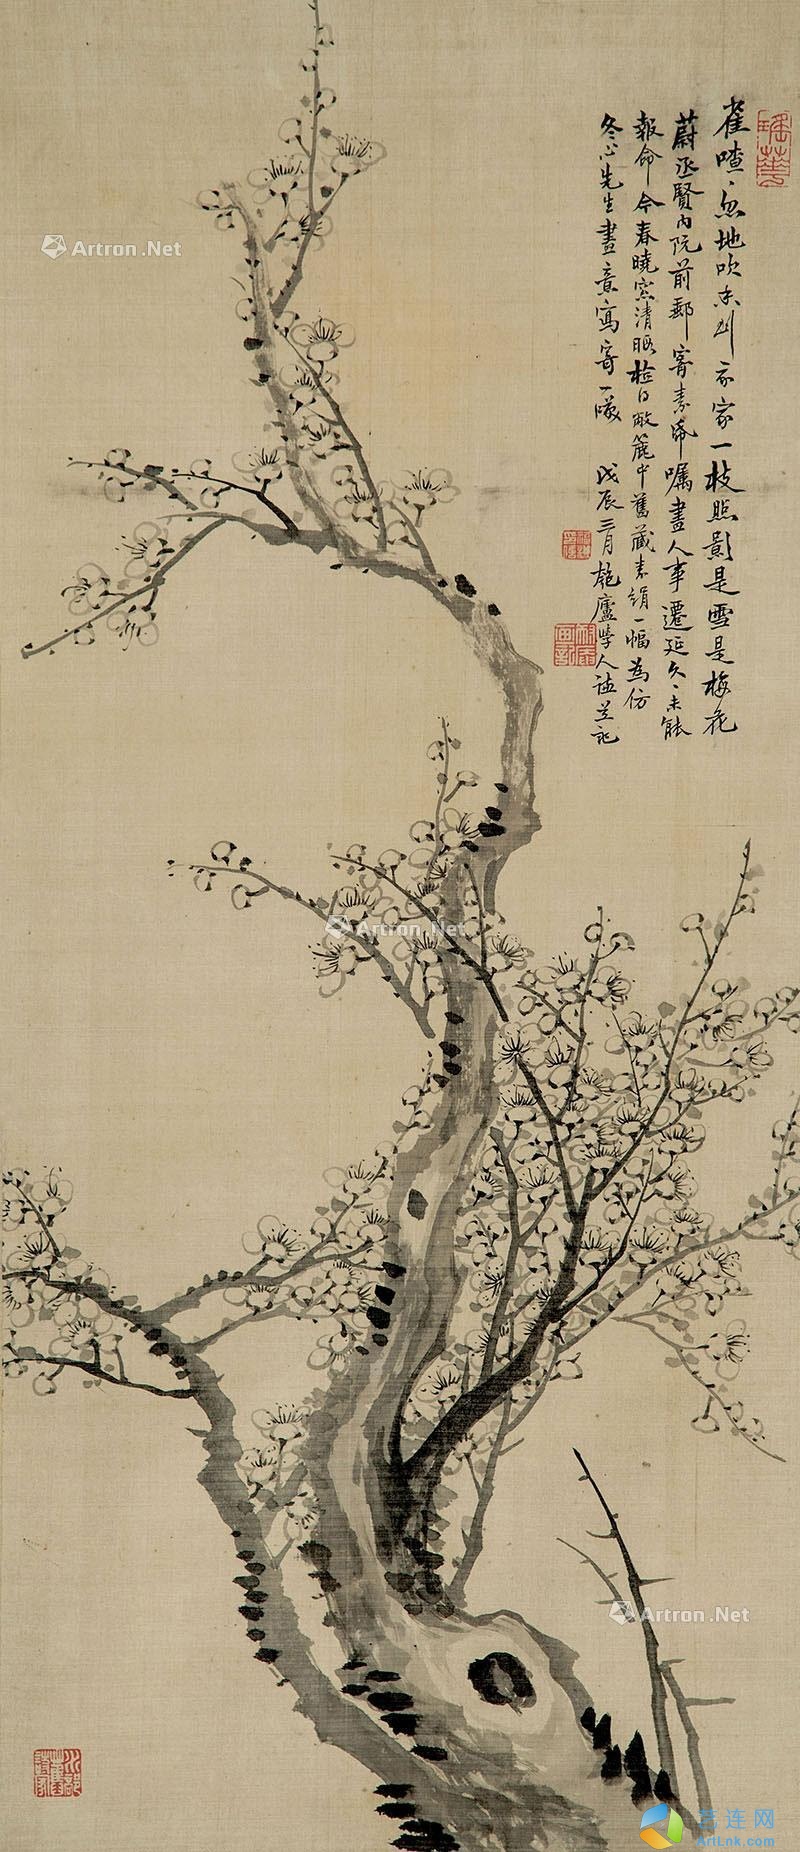 雀喳喳忽地吹香到家一枝照影是雪是梅花
蔚丞賢內阮前郵寄素帋囑畫人事遷延久久未能
報命今春曉窓清暇檢得敝簏中舊藏素絹一幅為仿
冬心先生畫意寫寄一噱 戊辰三月 廬學人 并記
瑤華
Artron.Net
Artron.Net
Artron.Net
艺连网
ArtLnk.com